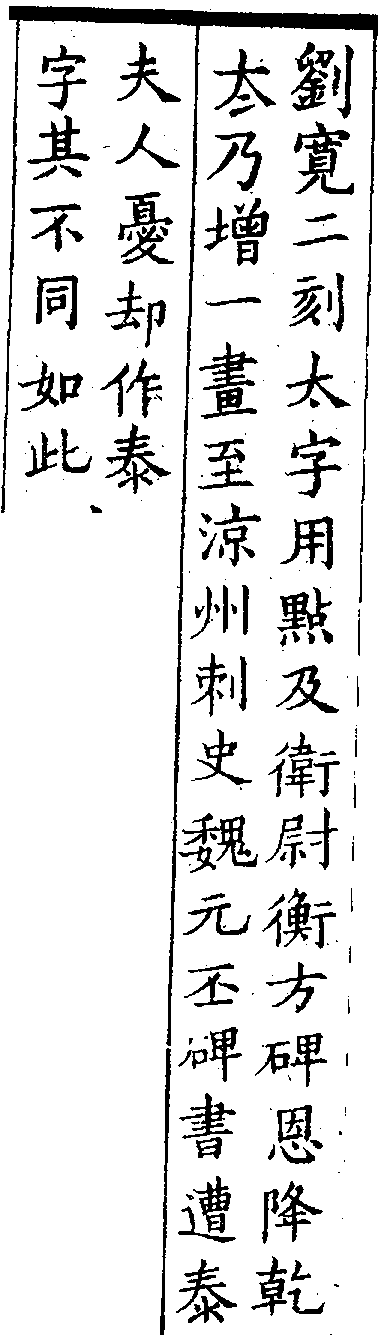 劉寬二刻太字用點及衛尉衡方碑恩降乾
夳乃增一畫至涼州刺史魏元丕碑書遭泰
夫人憂却作泰
字其不同如此